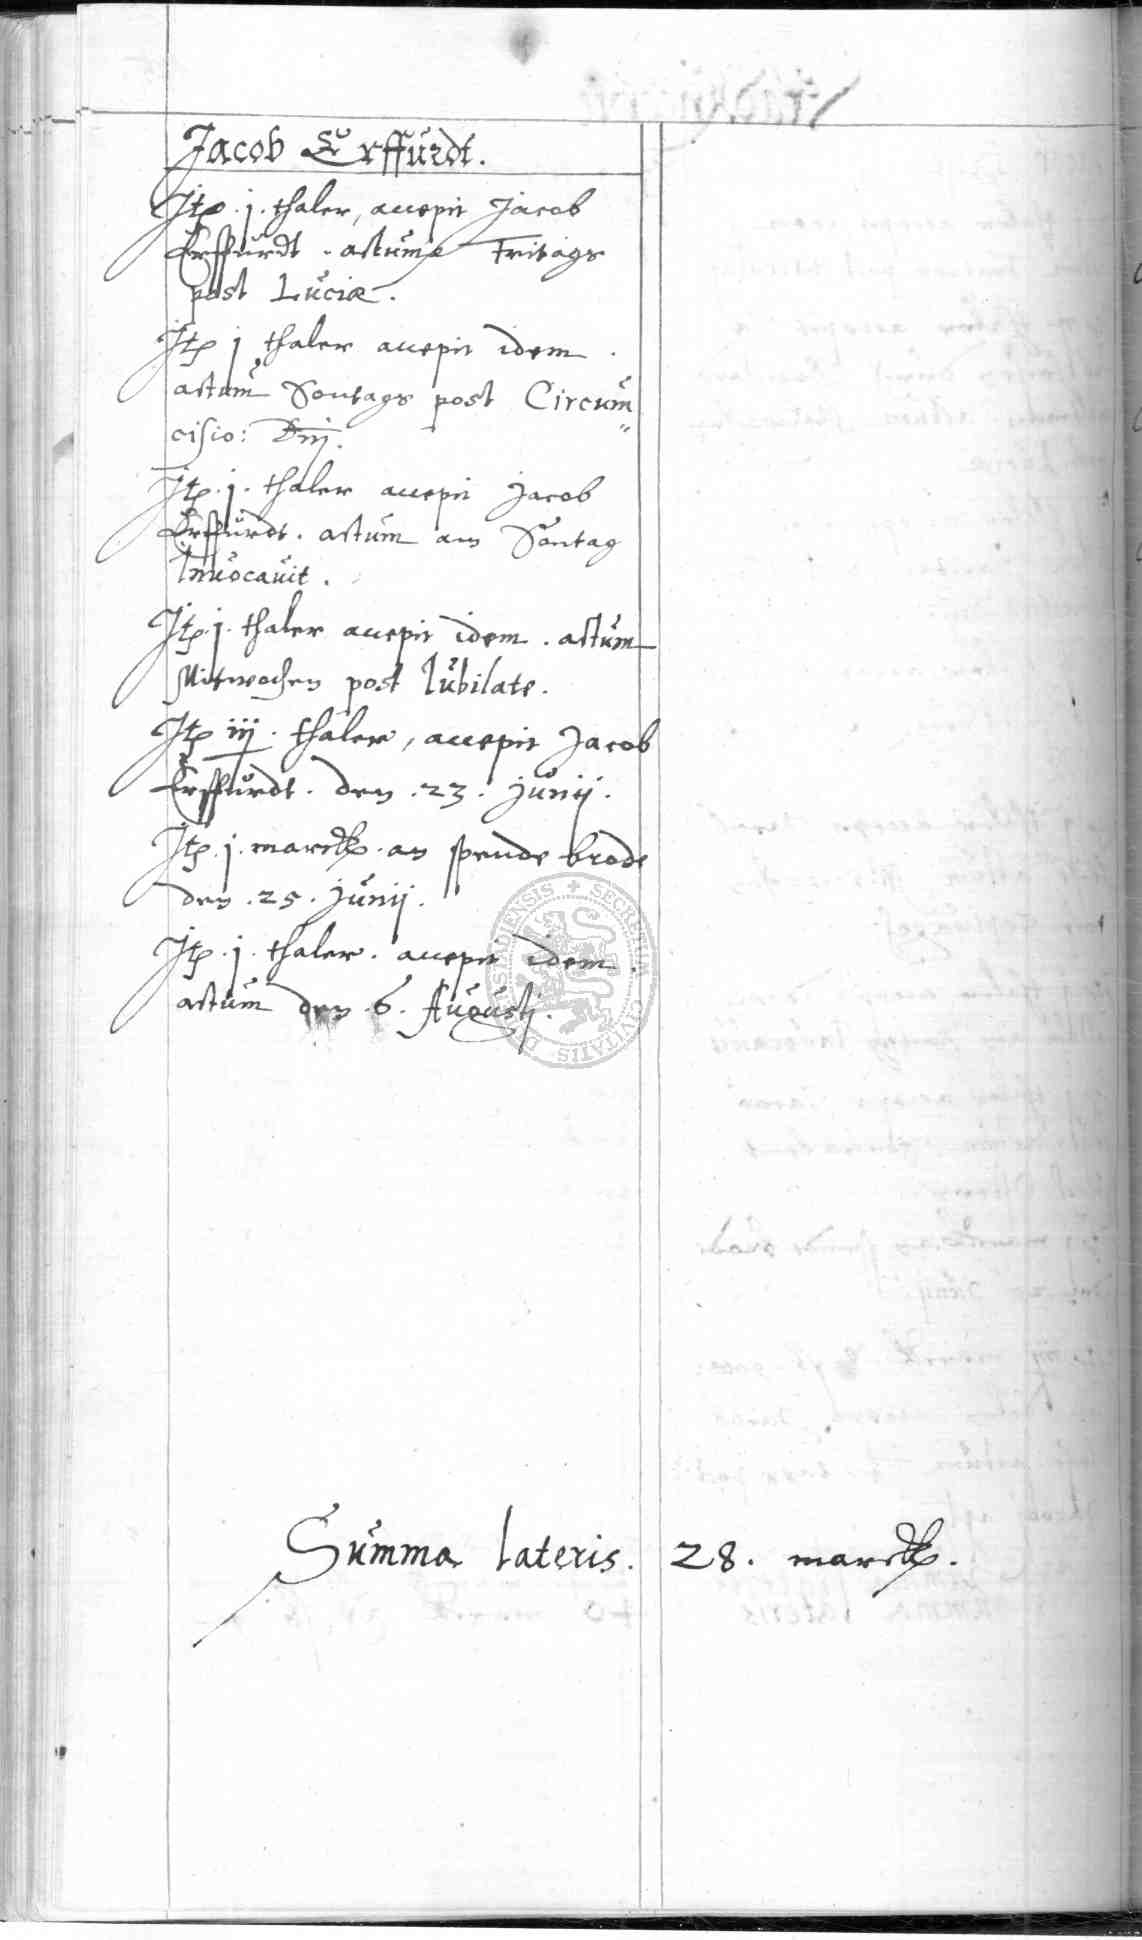 Jacob Erffurdt.
Itp. j. thaler, accepit Jacob
Erffurdt. actum Fritags
post Luciæ.
Itp j thaler accepit idem.
actum Sontags post Circum"
cisio: Dnj.
Itp. j. thaler accepit Jacob
Erffurdt. actum am Sontag
Invocavit.
Itp. j. thaler accepit idem. actum
Mitwochen post Iubilate.
Itp iij. thaler, accepit Jacob
Erffurdt. den .23. Junij.
Itp. j. marck. an spende brode
den .25. Junij.
Itp. j. thaler. accepit idem.
actum den .6. Augustj.
SECRETUM CIVITATIS
Summa lateris. 28. marck.